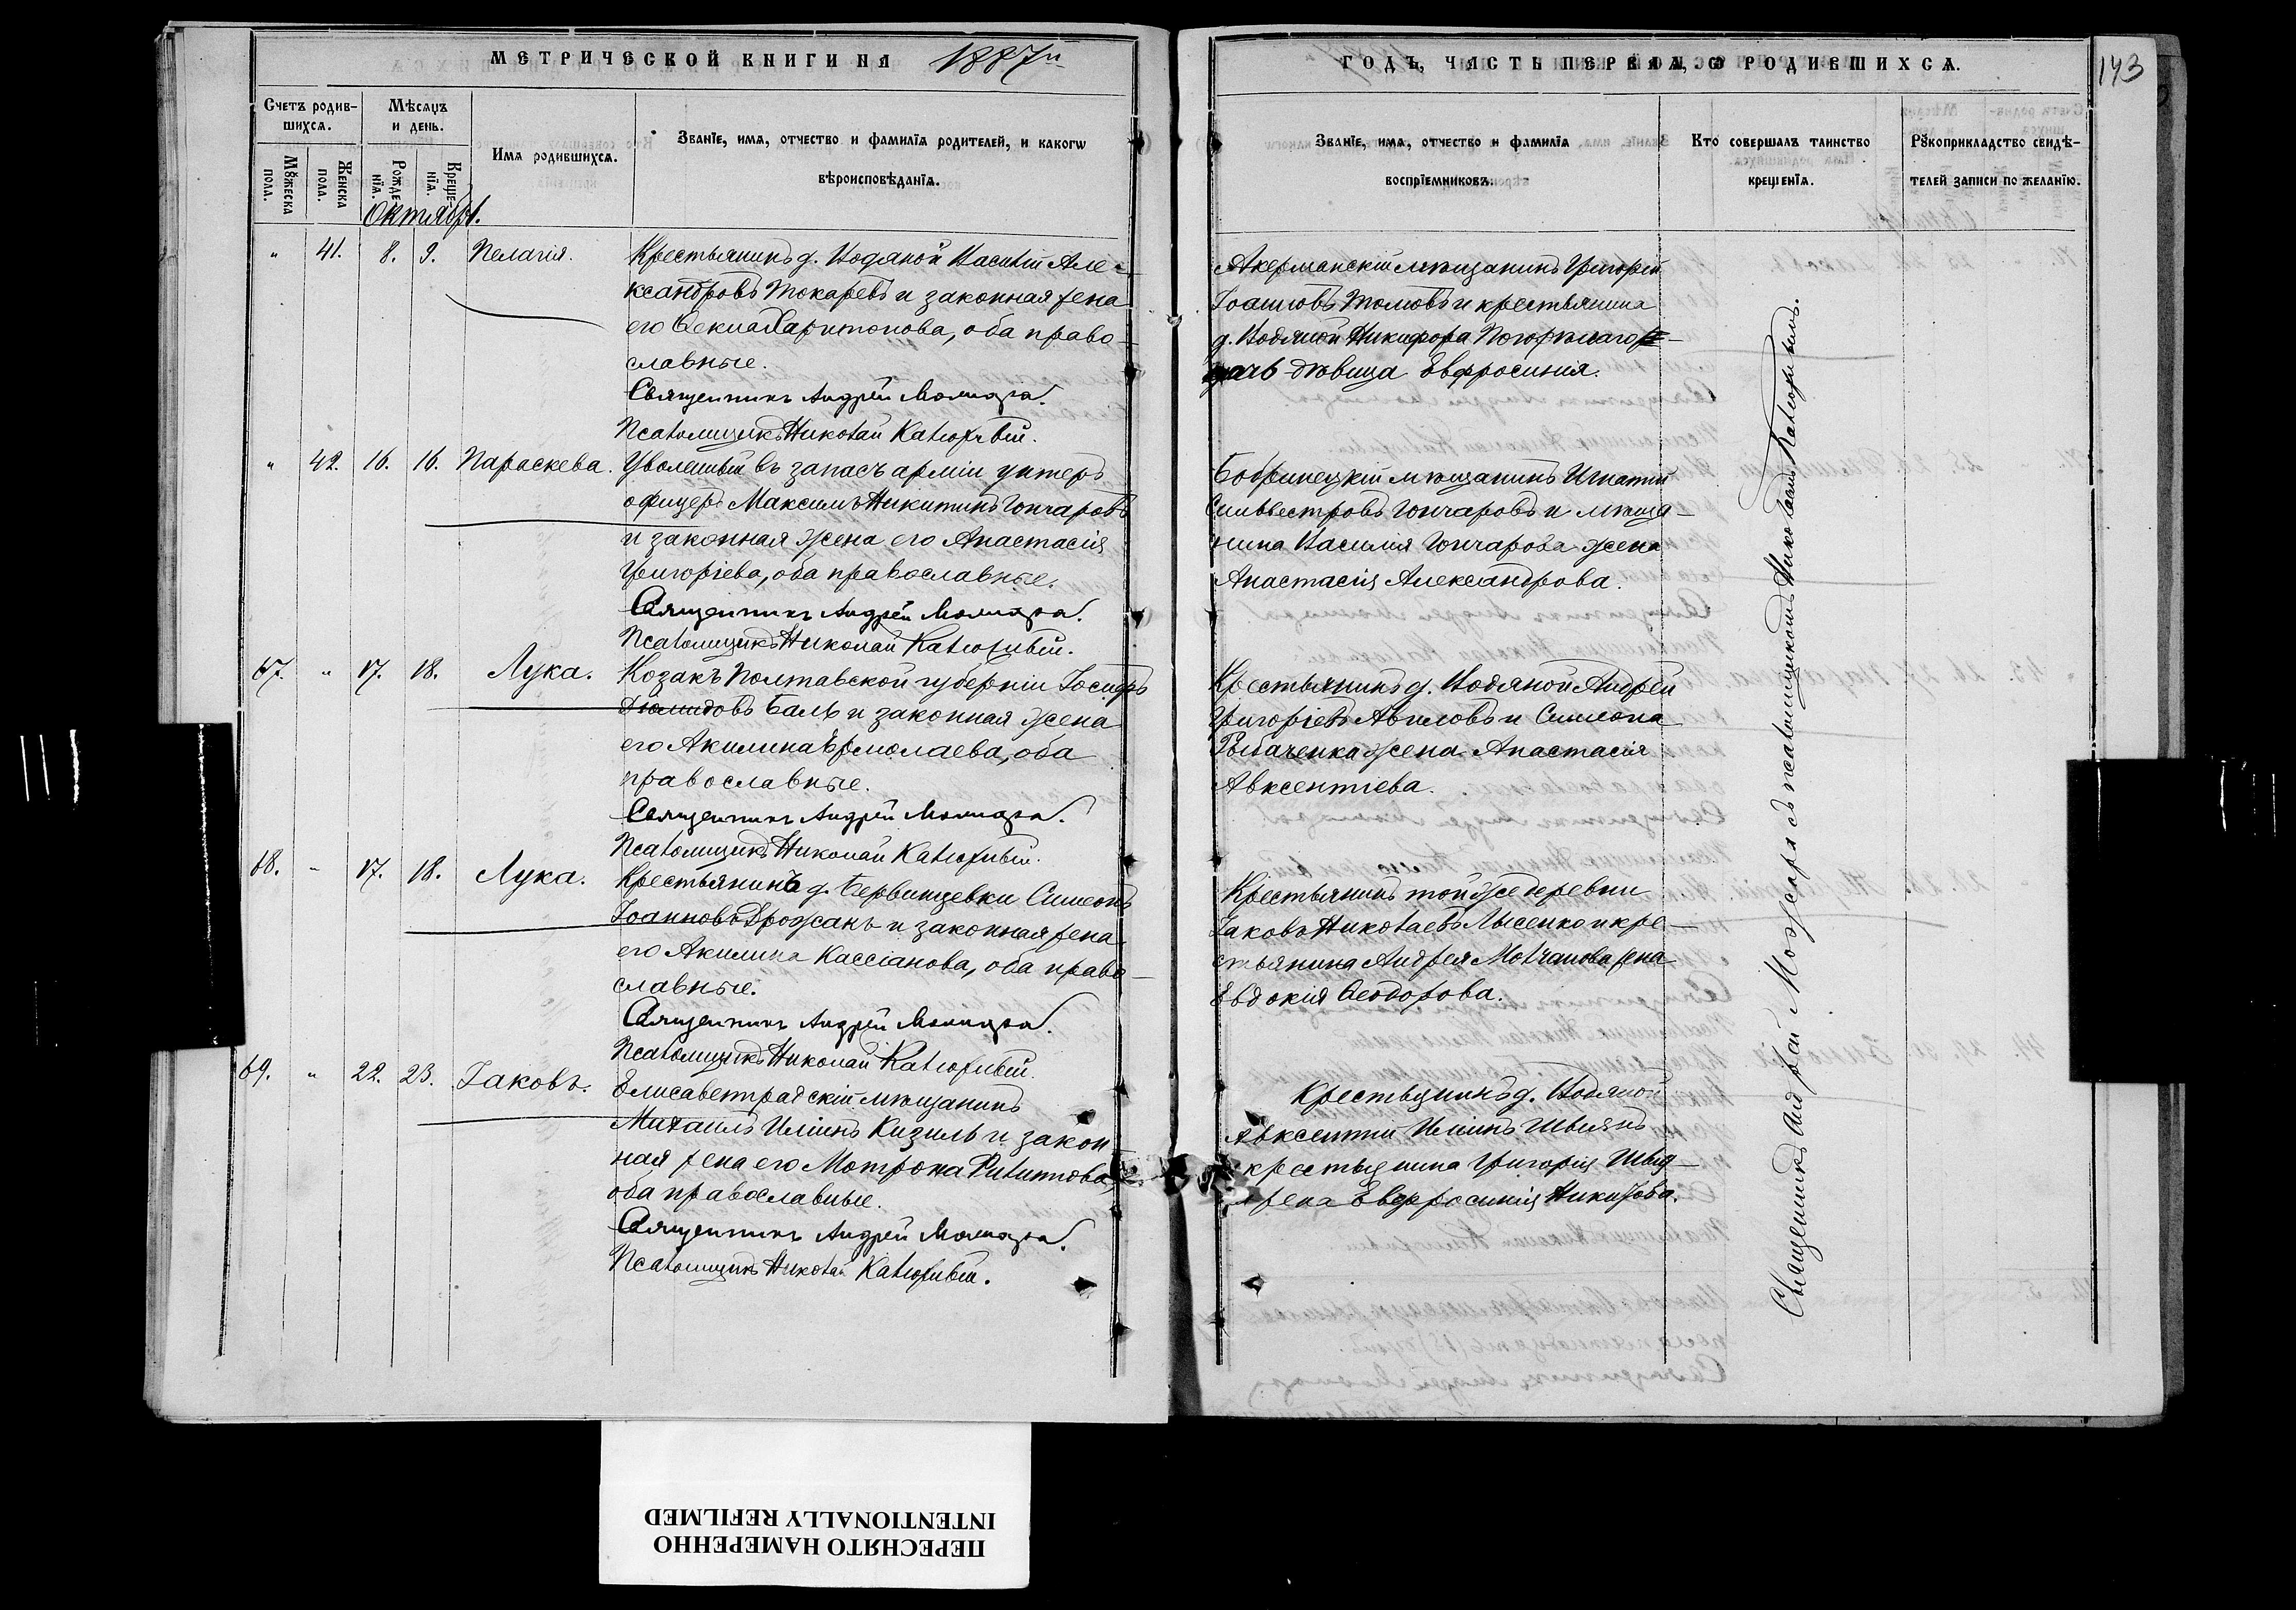 МЕТРИЧЕСКОЙ КНИГИ НА 1887й
Счетъ родившихся.
Мѣсяцъ и день.
Имя родившихся.
Званіе, имя, отчество и фамилія родителей, и какогѡ вѣроисповѣданія.
Мꙋжеска пола.
Женска пола.
Рожденія.
Крещенія.
Октябрь.
" 41. 8. 9. Пелагія.
Крестьянинъ д. Водяной Василій Але-
ксандровъ Токаревъ и законная жена
его Ѳекла Харитонова, оба право-
славные.
Священникъ Андрей Можара.
Псаломщикъ Николай
" 42. 16. 16. Параскева.
Уволенный въ запасъ арміи унтеръ
офицеръ Максимъ Никитинъ Гончаровъ
и законная жена его Анастасія
Григоріева, оба православные.
Священникъ Андрей Можара.
Псаломщикъ Николай
67. " 17. 18. Лука.
Козакъ Полтавской губерніи Іосифъ
Баль и законная жена
его Акилина Ермолаева, оба
православные.
Священникъ Андрей Можара.
Псаломщикъ Николай
68. " 17. 18. Лука.
Крестьянинъ д. Симеонъ
Іоанновъ Дрожанъ и законная жена
его Акилина Кассіанова, оба право-
славные.
Священникъ Андрей Можара.
Псаломщикъ Николай
69. " 22. 23. Іаковъ.
Елисаветградскій мѣщанинъ
Михаилъ Иліинъ Кизиль и закон
ная жена его Мотрона Филиппова,
оба православные.
Священникъ Андрей Можара.
Псаломщикъ Николай
ГОДЪ, ЧАСТЬ ПЕРВАЯ, Ѡ РОДИВШИХСѦ.
143
Званіе, имя, отчество и фамилія воспріемниковъ.
Кто совершалъ таинство крещенія.
Рꙋкоприкладство свидѣтелей записи по желанію.
Акерманскій мѣщанинъ Григорій
и крестьянина
д. Водяной Никифора
дочь дѣвица Евфросинія.
Бобринецкій мѣщанинъ Игнатій
Сильвестровъ Гончаровъ и мѣща-
нина Василія Гончарова жена
Анастасія Александрова.
Крестьянинъ д. Водяной Андрей
Григоріевъ Авиловъ и Симеона
Рыбаченка жена Анастасія
Авксентіева.
Крестьянинъ той же деревни
Іаковъ Николаевъ Лысенко и кре-
стьянина Андрея Молчанова жена
Евдокія Ѳеодорова.
Крестьянинъ д. Водяной
Авксентій Иліинъ
крестьянина Григорія
жена Евфросинія
Священникъ Андрей Можара съ псаломщикомъ Николаемъ
ПЕРЕСНЯТО НАМЕРЕННО
INTENTIONALLY REFILMED